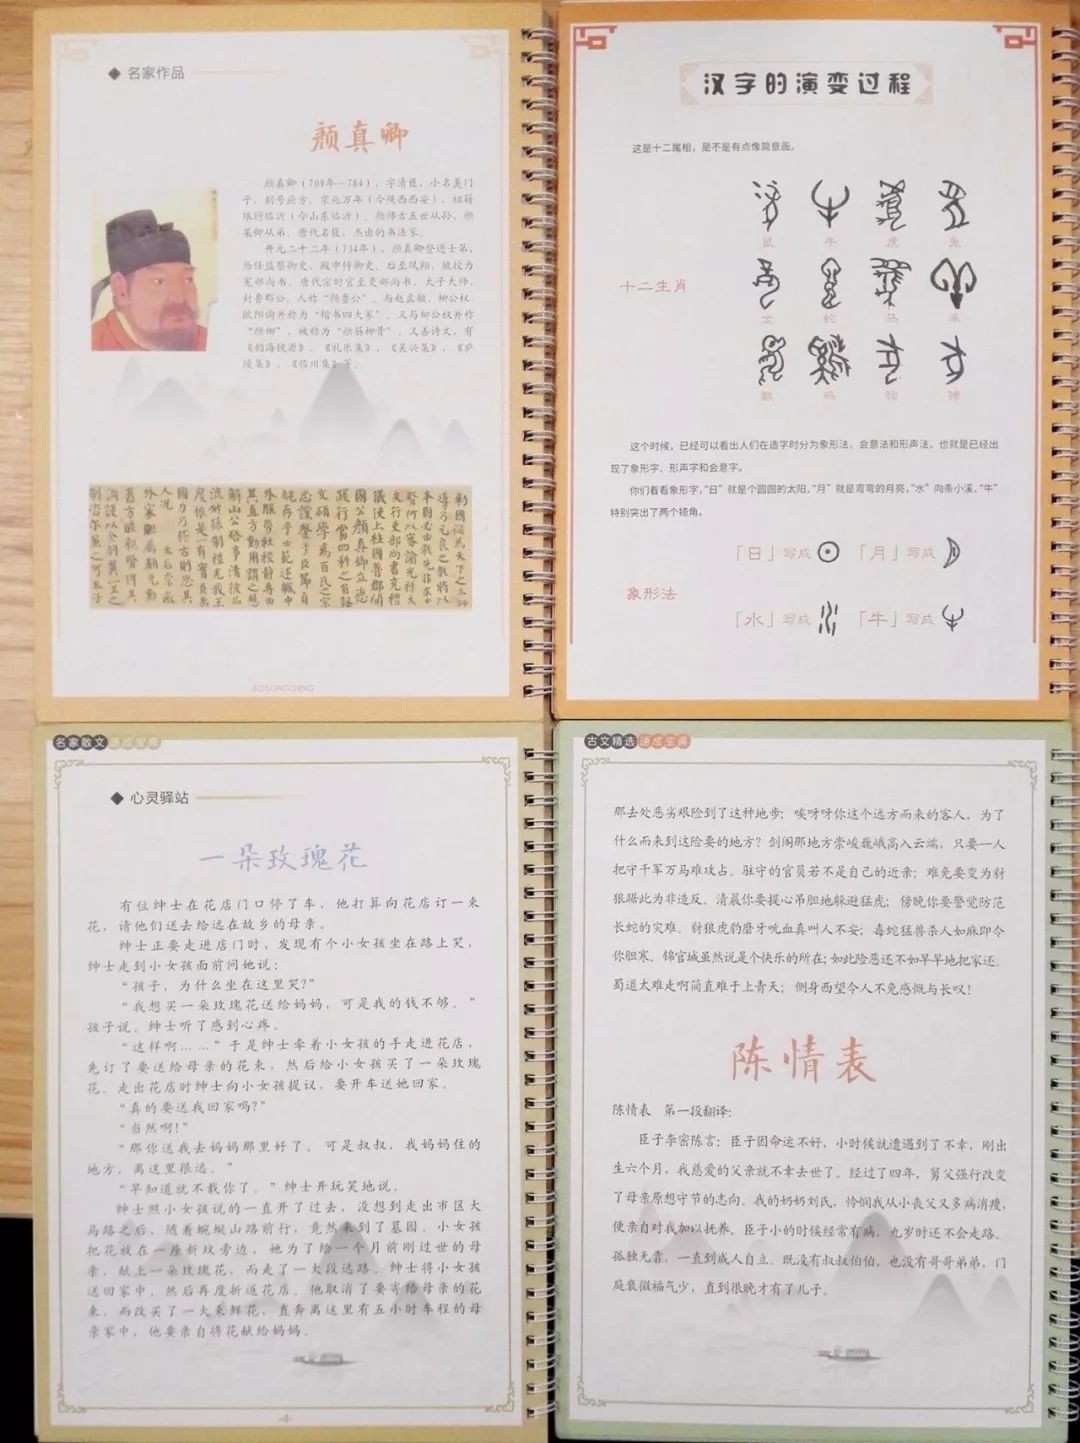 名家作品
颜真卿
颜真卿（709年—784），字清臣，小名羡门
子，别号应方，京兆万年（今陕西西安），祖籍
琅玡临沂（今山东临沂）。颜师古五世从孙、颜
杲卿从弟，唐代名臣，杰出的书法家。
开元二十二年（734年），颜真卿登进士第，
历任监察御史、殿中侍御史，后至凤翔，被授为
宪部尚书，唐代宗时官至吏部尚书、太子太师，
封鲁郡公，人称“颜鲁公”。与赵孟頫、柳公权、
欧阳询并称为“楷书四大家”。又与柳公权并称
“颜柳”，被称为“颜筋柳骨”。又善诗文，有
《韵海镜源》、《礼乐集》、《吴兴集》、《庐
陵集》、《临川集》等。
汉字的演变过程
这是十二属相，是不是有点像简意画。
十二生肖
鼠 牛 虎 兔
龙 蛇 马 羊
猴 鸡 狗 猪
这个时候，已经可以看出人们在造字时分为象形法，会意法和形声法，也就是已经出
现了象形字、形声字和会意字。
你们看看象形字，“日”就是个圆圆的太阳，“月”就是弯弯的月亮，“水”向条小溪，“牛”
特别突出了两个犄角。
「日」写成 「月」写成
象形法
「水」写成 「牛」写成
名家散文速成宝典
心灵驿站
一朵玫瑰花
有位绅士在花店门口停了车，他打算向花店订一束
花，请他们送去给远在故乡的母亲。
绅士正要走进店门时，发现有个小女孩坐在路上哭，
绅士走到小女孩面前问她说：
“孩子，为什么坐在这里哭？”
“我想买一朵玫瑰花送给妈妈，可是我的钱不够。”
孩子说。绅士听了感到心疼。
“这样啊……”于是绅士牵着小女孩的手走进花店，
先订了要送给母亲的花束，然后给小女孩买了一朵玫瑰
花。走出花店时绅士向小女孩提议，要开车送她回家。
“真的要送我回家吗？”
“当然啊！”
“那你送我去妈妈那里好了。可是叔叔，我妈妈住的
地方，离这里很远。”
“早知道就不载你了。”绅士开玩笑地说。
绅士照小女孩说的一直开了过去，没想到走出市区大
马路之后，随着蜿蜒山路前行，竟然来到了墓园。小女孩
把花放在一座新坟旁边，她为了给一个月前刚过世的母
亲，献上一朵玫瑰花，而走了一大段远路。绅士将小女孩
送回家中，然后再度折返花店。他取消了要寄给母亲的花
束，而改买了一大束鲜花，直奔离这里有五小时车程的母
亲家中，他要亲自将花献给妈妈。
4
古文精选速成宝典
那去处恶劣艰险到了这种地步；唉呀呀你这个远方而来的客人，为了
什么而来到这险要的地方？剑阁那地方崇峻巍峨高入云端，只要一人
把守千军万马难攻占。驻守的官员若不是自己的近亲；难免要变为豺
狼踞此为非造反。清晨你要提心吊胆地躲避猛虎；傍晚你要警觉防范
长蛇的灾难。豺狼虎豹磨牙吮血真叫人不安；毒蛇猛兽杀人如麻即令
你胆寒。锦官城虽然说是个快乐的所在；如此险恶还不如早早地把家还。
蜀道太难走啊简直难于上青天；侧身西望令人不免感慨与长叹！
陈情表
陈情表　第一段翻译：
臣子李密陈言：臣子因命运不好，小时候就遭遇到了不幸，刚出
生六个月，我慈爱的父亲就不幸去世了。经过了四年，舅父强行改变
了母亲原想守节的志向。我的奶奶刘氏，怜悯我从小丧父又多病消瘦，
便亲自对我加以抚养。臣子小的时候经常有病，九岁时还不会走路。
孤独无靠，一直到成人自立。既没有叔叔伯伯，也没有哥哥弟弟，门
庭衰微福气少，直到很晚才有了儿子。